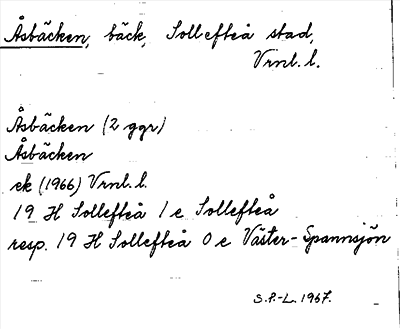 Åsbäcken, bäck, Sollefteå stad,
Vrnl. l.
Åsbäcken (2 ggr)
Åsbäcken
ek (1966) Vrnl. l.
19 H Sollefteå 1 e Sollefteå
resp. 19 H Sollefteå 0 e Väster-Spannsjön
S.P.-L. 1967.